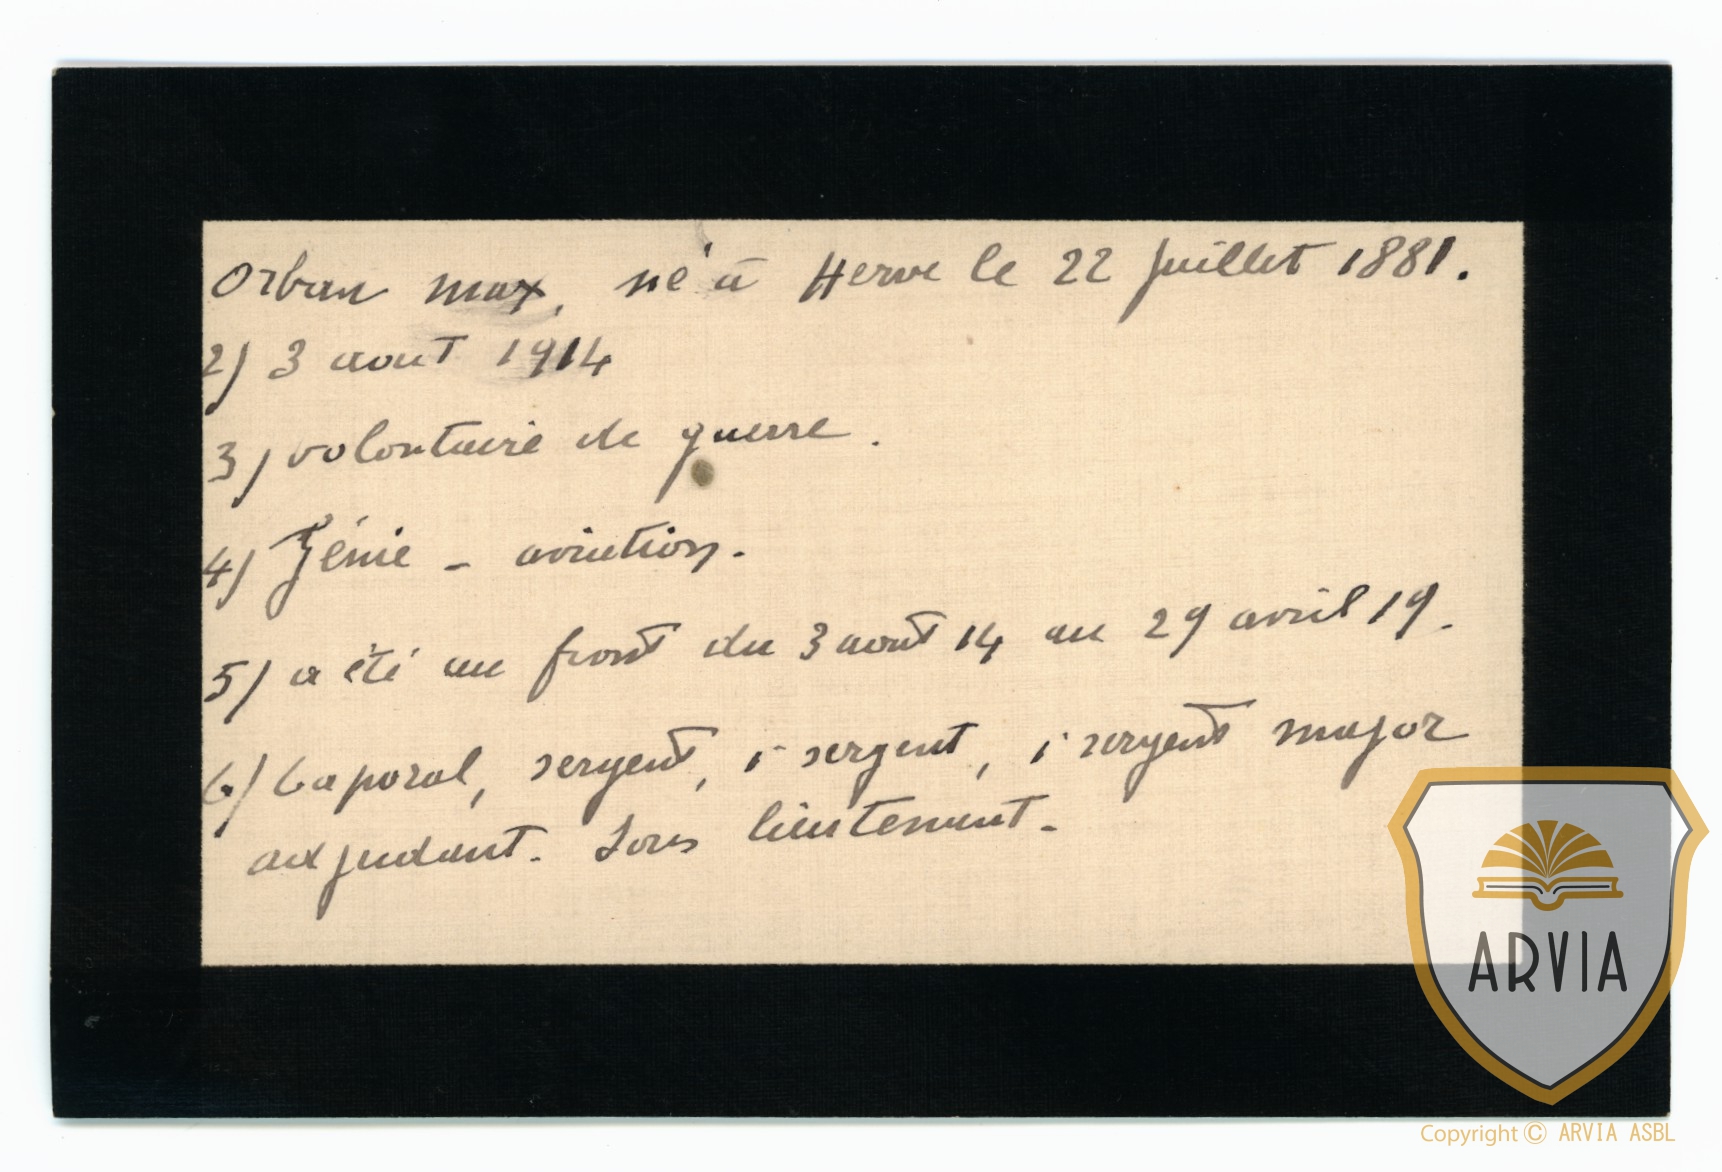 Orban Max, né à Herve le 22 Juillet 1881.
2) 3 aout 1914
3) volontaire de guerre.
4) Génie - aviation.
5) a été au front du 3 aout 14 au 29 avril 19.
6) Caporal, sergent, 1r sergent, 1r sergent major
adjudant. Sous lieutenant.
ARVIA
Copyright © ARVIA ASBL